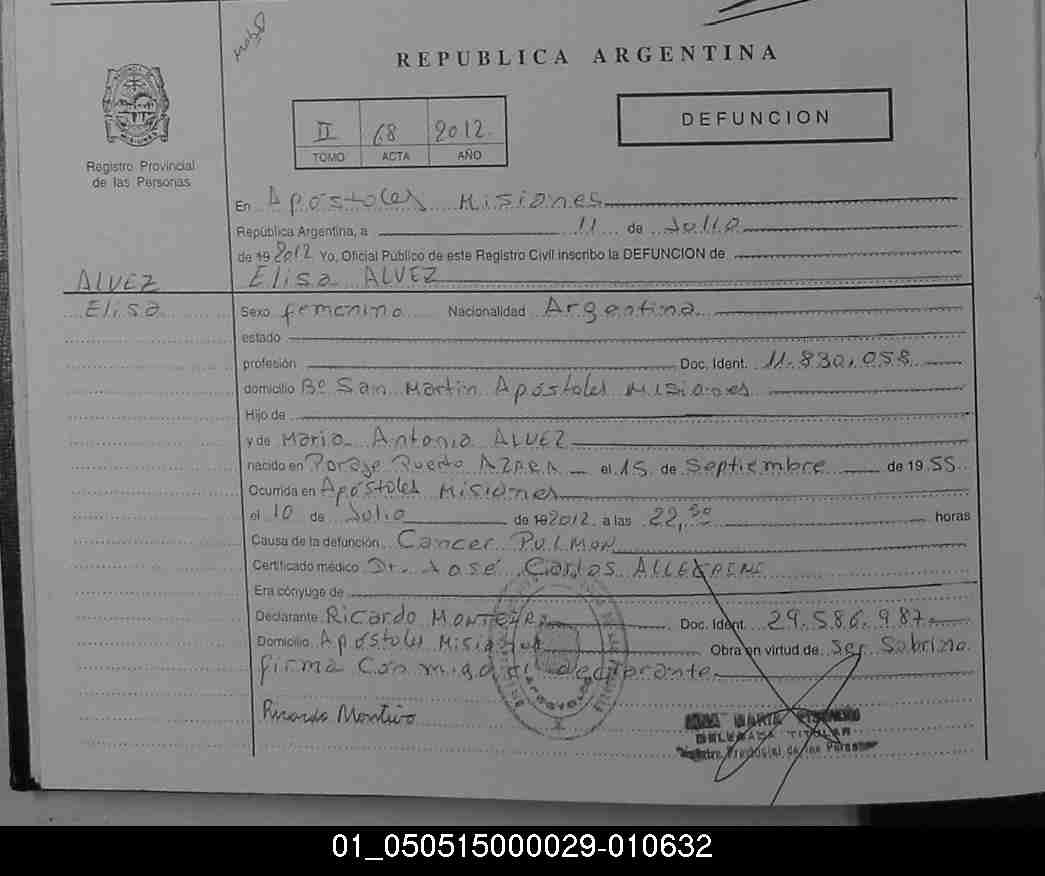 REPUBLICA ARGENTINA
II 68 2012.
TOMO ACTA AÑO
DEFUNCION
Registro Provincial
de las Personas
En Apóstoles Misiones
República Argentina, a 11 de Julio
de 19 2012 Yo, Oficial Público de este Registro Civil inscribo la DEFUNCION de
ALVEZ Elisa ALVEZ
Elisa Sexo femenino Nacionalidad Argentina
estado
profesión Doc. Ident. 11.830.058
domicilio Bº San Martin Apóstoles Misiones
Hijo de
y de Maria Antonia ALVEZ
nacido en Paraje Puerto AZARA el 15 de Septiembre de 19 55
Ocurrida en Apóstoles Misiones
el 10 de Julio de 19 2012 a las 22,30 horas
Causa de la defunción Cancer PULMON
Certificado médico Dr. José Carlos
Era cónyuge de
Declarante Ricardo Doc. Ident. 29.586.987
Domicilio Apóstoles Misiones Obra en virtud de Ser Sobrino.
firma Conmigo el declarante
Ricardo
MARIA
DELEGADA TITULAR
Registro Provincial de las Personas
01_050515000029-010632